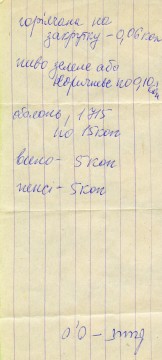 горілчана на
закрутку - 0,06 коп
пиво зелене або
коричневе по 0,10 коп
оболонь, 1715
по 15 коп
вино - 5 коп
пепсі - 5 коп
- 0,0